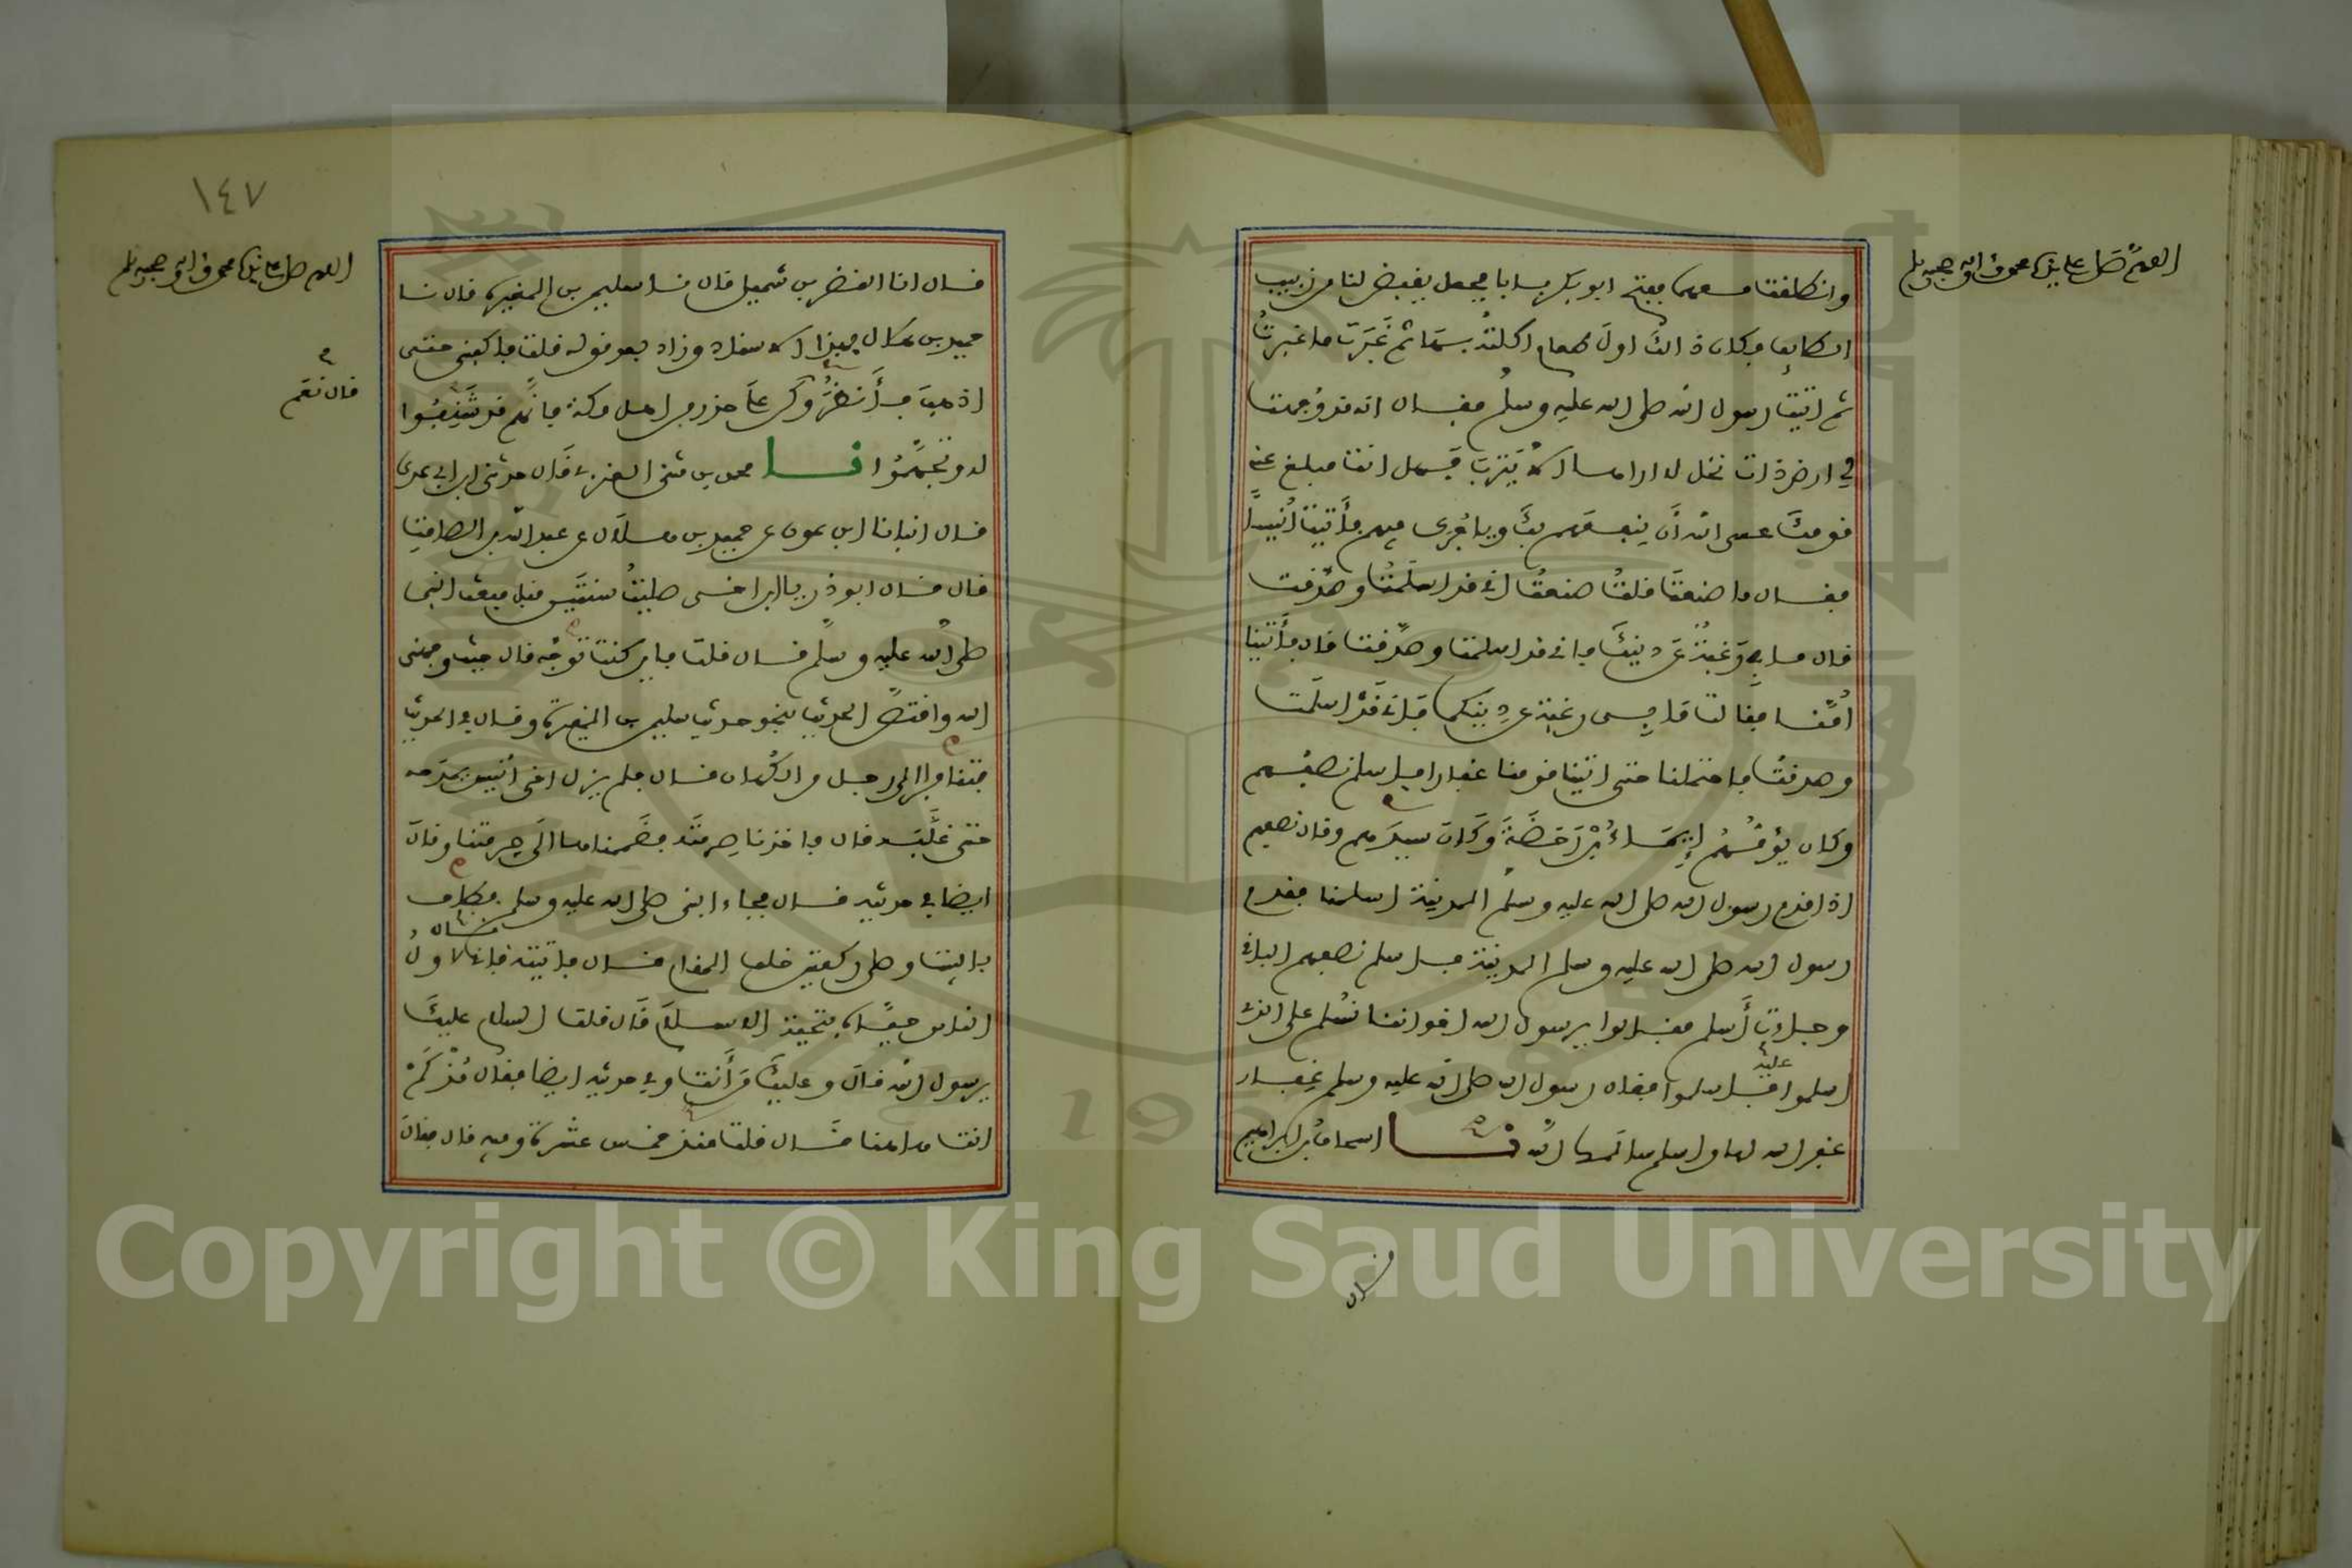 اللهم صل على سيدنا محمد وآله وصحبه وسلم
وانطلقت معهما ففتح ابو بكر بابا فجعل يقبض لنا من زبيب
الطايف وكان ذالك اول طعام اكلته بها ثم غبرت ما غبرت
ثم اتيت رسول الله صلى الله عليه وسلم فقال انه قد وجهت
لي ارض ذات نخل لا اراها الا يثرب فهل انت مبلغ عني
قومك عسى الله أن ينفعهم بك وياجرك فيهم فأتيت أنيسا
فقال ما صنعت قلت صنعت اني قد اسلمت وصدقت
قال ما بي رغبة عن دينك فاني قد اسلمت وصدقت قال فأتينا
أمنا فقالت ما بي رغبة عن دينكما فاني قد اسلمت
وصدقت فاحتملنا حتى اتينا قومنا غفارا فاسلم نصفهم
وكان يؤمهم إيماء بن رحضة وكان سيدهم وقال نصفهم
اذا قدم رسول الله صلى الله عليه وسلم المدينة اسلمنا فقدم
رسول الله صلى الله عليه وسلم المدينة فاسلم نصفهم الباقي
وجاءت أسلم فقالوا يرسول الله اخواننا نسلم على الذي
عليه
اسلموا فاسلموا فقال رسول الله صلى الله عليه وسلم غفار
غفر الله لها واسلم سالمها الله نا اسحاق بن ابراهيم
قال
١٤٧
اللهم صل على سيدنا محمد وآله وصحبه وسلم
قال انا النضر بن شميل قال نا سليمن بن المغيرة قال نا
حميد بن هلال بهذا الاسناد وزاد بعد قوله قلت فاكفني حتى
قال نعم
اذهب فأنظر وكن على حذر من اهل مكة فانهم قد شنفوا
له وتجهموا نا محمد بن مثنى العنزي قال حدثني ابن ابي عدي
قال انبانا ابن عون عن حميد بن هلال عن عبد الله بن الصامت
قال قال ابو ذر يابن اخي صليت سنتين قبل مبعث النبي
صلى الله عليه وسلم قال قلت فاين كنت توجه قال حيث وجهني
الله واقتص الحديث بنحو حديث سليمن بن المغيرة وقال في الحديث
فتنافرا الى رجل من الكهان قال فلم يزل اخي أنيس يمدحه
حتى غلبه قال فاخذنا صرمته فضممناها الى صرمتنا وقال
ايضا في حديثه قال فجاء النبي صلى الله عليه وسلم فطاف
بالبيت وصلى ركعتين خلف المقام قال فاتيته فاني لاول
الناس حياه بتحية الاسلام قال قلت السلام عليك
يرسول الله قال وعليك من أنت وفي حديثه ايضا فقال مذ كم
انت هاهنا قال قلت منذ خمس عشرة وفيه قال فقال